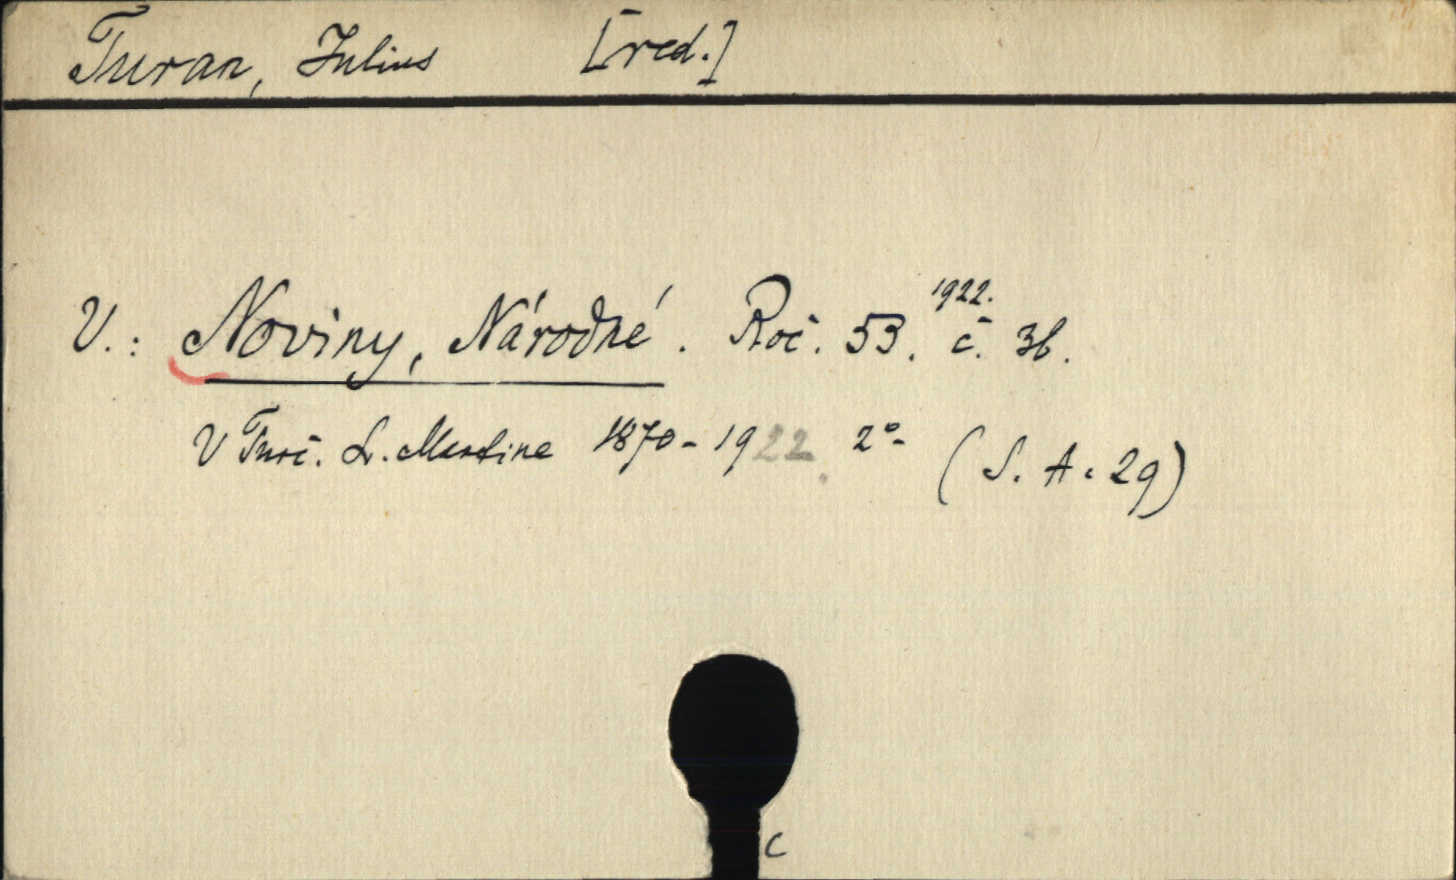 Turan, Julius [red.]
V.: Noviny, Národné. Roč. 53. 1922. č. 36.
V Turč. S. Martine 1870-1922. 2°- (S. A. 29)
c